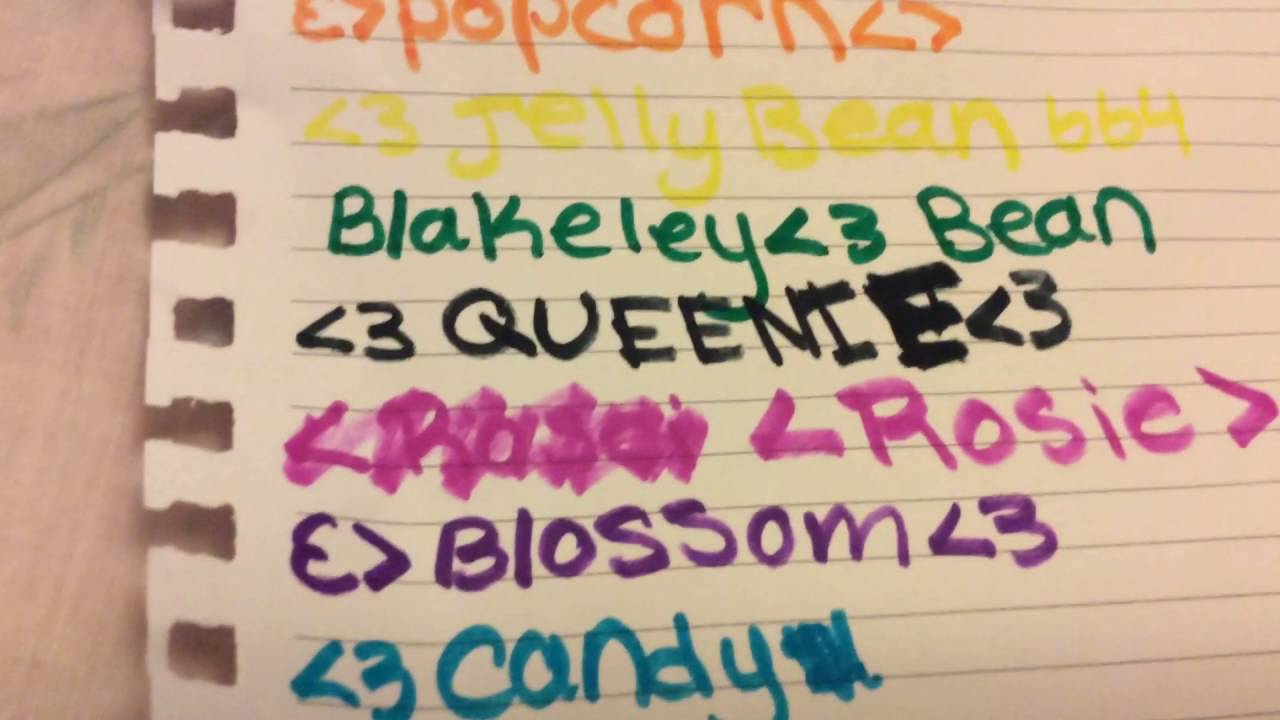 ε>popcorn<>
<3 Jelly Bean 664
Blakeley<3 Bean
<3 QUEENIE<3
<Rosie>
ε>Blossom<3
<3 candy